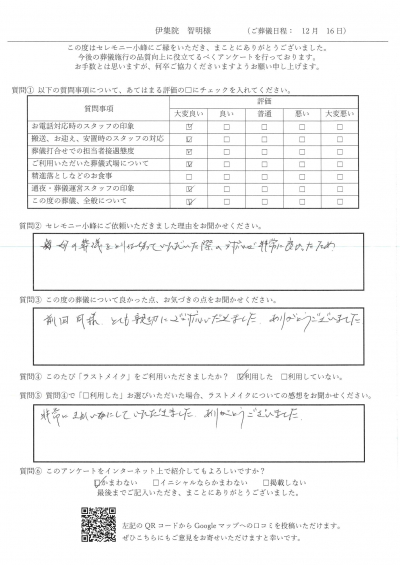 伊集院　智明様　（ご葬儀日程：　12 月　16 日）
この度はセレモニー小峰にご縁をいただき、まことにありがとうございました。
今後の葬儀施行の品質向上に役立てるべくアンケートを行っております。
お手数とは思いますが、何卒ご協力くださいますようお願い申し上げます。
質問① 以下の質問事項について、あてはまる評価の□にチェックを入れてください。
質問事項 評価
大変良い 良い 普通 悪い 大変悪い
お電話対応時のスタッフの印象 ☑ □ □ □ □
搬送、お迎え、安置時のスタッフの対応 ☑ □ □ □ □
葬儀打合せでの担当者接遇態度 ☑ □ □ □ □
ご利用いただいた葬儀式場について ☑ □ □ □ □
精進落としなどのお食事 □ □ □ □ □
通夜・葬儀運営スタッフの印象 ☑ □ □ □ □
この度の葬儀、全般について ☑ □ □ □ □
質問② セレモニー小峰にご依頼いただきました理由をお聞かせください。
母の葬儀をとり仕切っていただいた際の対応が非常に良かったため
質問③ この度の葬儀について良かった点、お気づきの点をお聞かせください。
前田 様 とても親切にご対応いただきました。ありがとうございました
質問④ このたび「ラストメイク」をご利用いただきましたか？　☑利用した　□利用していない。
質問⑤ 質問④で「□利用した」お選びいただいた場合、ラストメイクについての感想をお聞かせください。
非常に きれいにしていただきました。ありがとうございました
質問⑥ このアンケートをインターネット上で紹介してもよろしいですか？
☑かまわない　□イニシャルならかまわない　□掲載しない
最後までご記入いただき、まことにありがとうございました。
左記のQRコードからGoogleマップへの口コミを投稿いただけます。
ぜひこちらにもご意見をお寄せいただけますと幸いです。